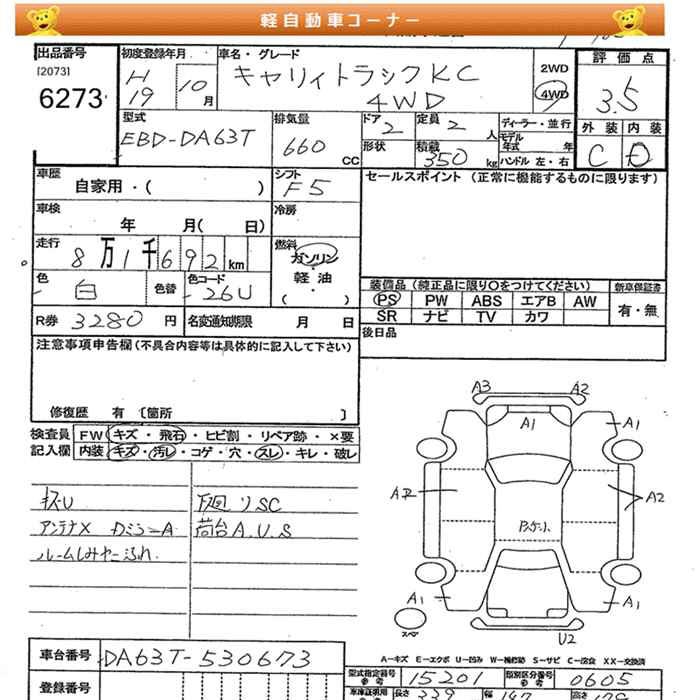 軽自動車コーナー
出品番号
[2073]
6273
初度登録年月
H
19
10
月
車名・グレード
キャリィトラックKC
4WD
2WD
4WD
評価点
3.5
外装 内装
C D
型式
EBD-DA63T
排気量
660
CC
ドア
2
定員
2
人
形状
積載
350
kg
ディーラー・並行
モデル
年式 年
ハンドル 左・右
車歴
自家用・( )
シフト
F5
セールスポイント (正常に機能するものに限ります)
車検
年 月( 日)
冷房
走行
8万1千692km
燃料
ガソリン
・
軽油
( )
色
白
色替
色コード
26U
装備品 (純正品に限り○をつけてください)
新車保証書
PS PW ABS エアB AW
SR ナビ TV カワ
有・無
R券 3280円
名変通知期限 月 日
後日品
注意事項申告欄 (不具合内容等は具体的に記入して下さい)
修復歴 有 〔箇所 〕
検査員
記入欄
FW キズ・飛石・ヒビ割・リペア跡・×要
内装 キズ・汚レ・コゲ・穴・スレ・キレ・破レ
キズU
下回りSC
アンテナX
荷台A.U.S
A3
A2
A1
A1
A2
A1
A1
スペア
U2
A-キズ E-エクボ U-凹み W-補修跡 S-サビ C-腐食 X X-交換済
車台番号
DA63T-530673
登録番号
型式指定番号
参考
15201
類別区分番号
参考
0605
長さ
339
幅
147
高さ